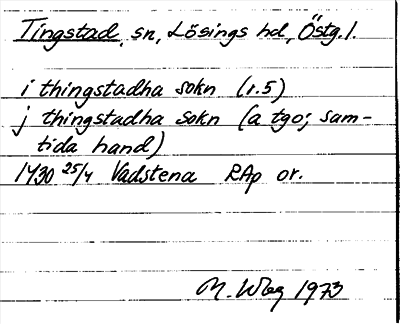 Tingstad, sn, Lösings hd, Östg. l.
i thingstadha sokn (r.5)
j thingstadha sokn (a tgo; sam-
tida hand)
1430 25/4 Vadstena RAp or.
M. Wbg 1973